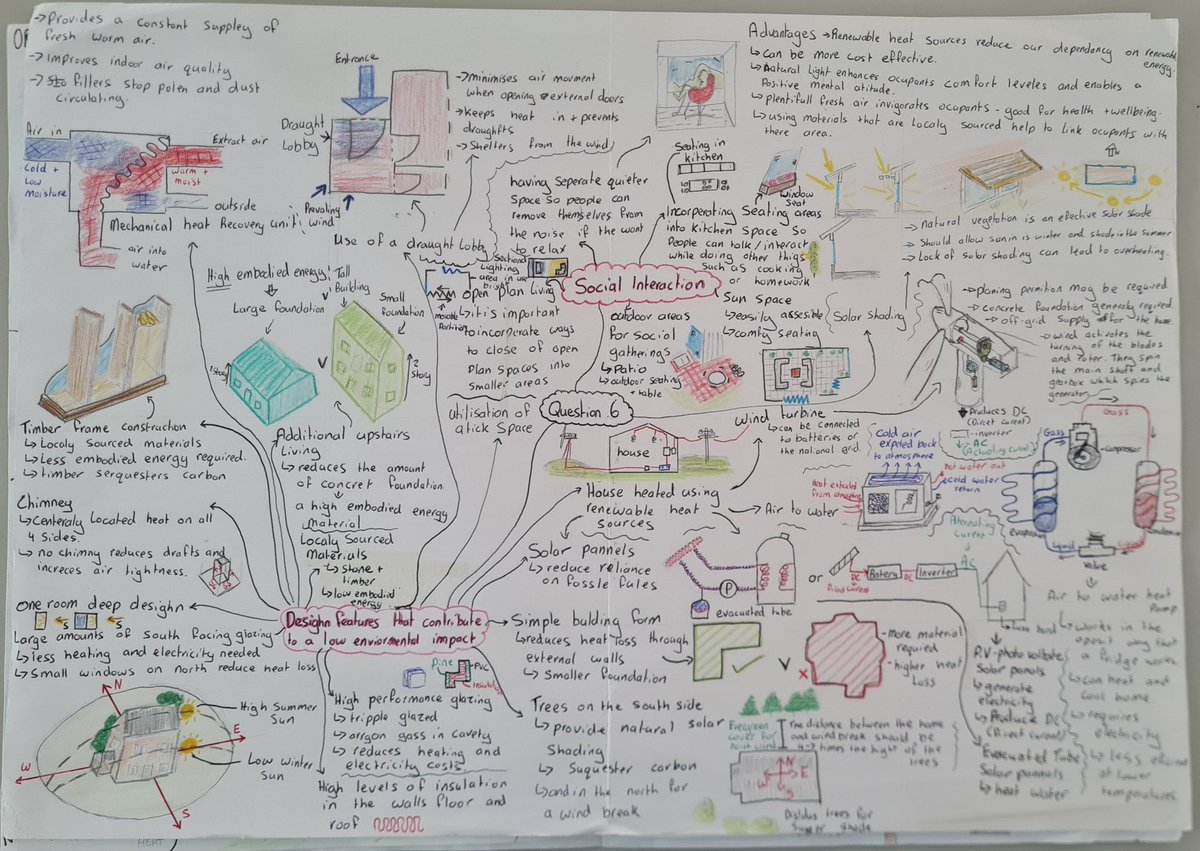 →Provides a constant suppley of
fresh warm air.
→Improves indoor air quality
→ filters stop polen and dust
circulating.
Air in
Extract air
Cold +
Low
moisture
warm +
moist
outside
Mechanical heat Recovery unit
air into
water
Entrance
Draught
Lobby
Prevaling
wind
Use of a draught Lobby
→minimises air movment
when opening external doors
→keeps heat in + prevents
draughfts
→Shelters from the wind
having seperate quieter
Space So people can
remove themselves from
the noise if the want
to relax
Seating in
kitchen
window
Seat
Incorperating Seating areas
into kitchen Space So
People can talk/interact
while doing other thigs
Such as cooking
or homework
Advantages →Renewable heat Sources reduce our dependancy on renewable
energy.
↳can be more cost effective.
↳Natural light enhances ocupants comfort leveles and enables a
Positive mental atitude.
↳plentifull fresh air invigorates ocupants - good for health +wellbeing.
↳using materials that are localy sourced help to link ocupants with
there area.
N
→natural vegetation is an effective solar shade
→Should allow sun in is winter and shade in the summer
→Lack of solar shading can lead to overheeting.
Solar shading
Social Interaction
Sectional
Lighting
area in use
bright
open plan living
movable
Partition
↳it is important
to incorperate ways
to close of open
Plan spaces into
smaller areas
outdoor areas
For social
gatherings
↳Patio
↳outdoor seating
+table
Sun Space
↳easily assesible
↳comfy seating
High embodied energy
Large foundation
1 story
V
Tall
Building
Small
foundation
2 story
Additional upstairs
Living
↳reduces the amount
of concret foundation.
a high embodied energy
material
Timber frame construction
↳Localy Sourced materials
↳Less embodied energy required.
↳timber serquesters carbon
Chimney
↳Centeraly Located heat on all
4 Sides.
↳no chimny reduces drafts and
increces air tightness.
utilisation of
atick Space
Question 6
house
wind turbine
↳can be connected
to batteries of
the national grid.
→planing permition may be required
→concrete foundation generaly rquired
→off-grid supply for the home
→wind activates the
turning of the blades
and roter. They spin
the main shaft and
gearbox which spins the
generater.
Produces DC
(Direct curent)
-inverter
AC
House heated using
renewable heat
sources
→Air to water
Cold air
expeled back
to atmosphere
Heat extracted
from atmosphere
hot water out
cold water
return
Gass
Gass
compresor
evaporator
liquid
valve
Alternating
curent
Air to water heat
Pump
↳works in the
oposit way that
a fridge works.
↳can heat and
cool home
↳requires
electricity
↳less eficient
at lower
temperatures.
Locally Sourced
Materials
↳Stone +
timber
↳low embodied
energy
Solar pannels
↳reduce reliance
on Fossle fules
P
evacuated tube
or
DC
Direct current
DC
Inverter
AC
P.V-photo voltaite
Solar panels
↳generate
electricity
↳Produce DC
(Direct curent)
Evacuated Tube
Solar pannals
↳heat water
One room deep design
S
S
Large amounts of south facing glazing
↳less heating and electricity needed
↳Small windows on north reduce heat loss
N
E
W
S
High Summer
Sun
Low Winter
Sun
Designn features that contribute
to a low enviormental impact
Simple bulding form
↳reduces heat loss through
external walls
↳Smaller foundation
V
-more material
required
-higher heat
Loss
Pine
PVC
Insulation
High performance glazing
↳tripple glazed
↳argon gass in cavety
↳reduces heating and
electricity costs
High levels of insulation
in the walls floor and
roof
Trees on the south side
↳provide natural solar
Shading
↳Suquester carbon
↳and in the north for
a wind break
Evergreen
cover for
north wind
The distance between the home
and wind break should be
4-7 times the hight of the
trees
N
E
S
W